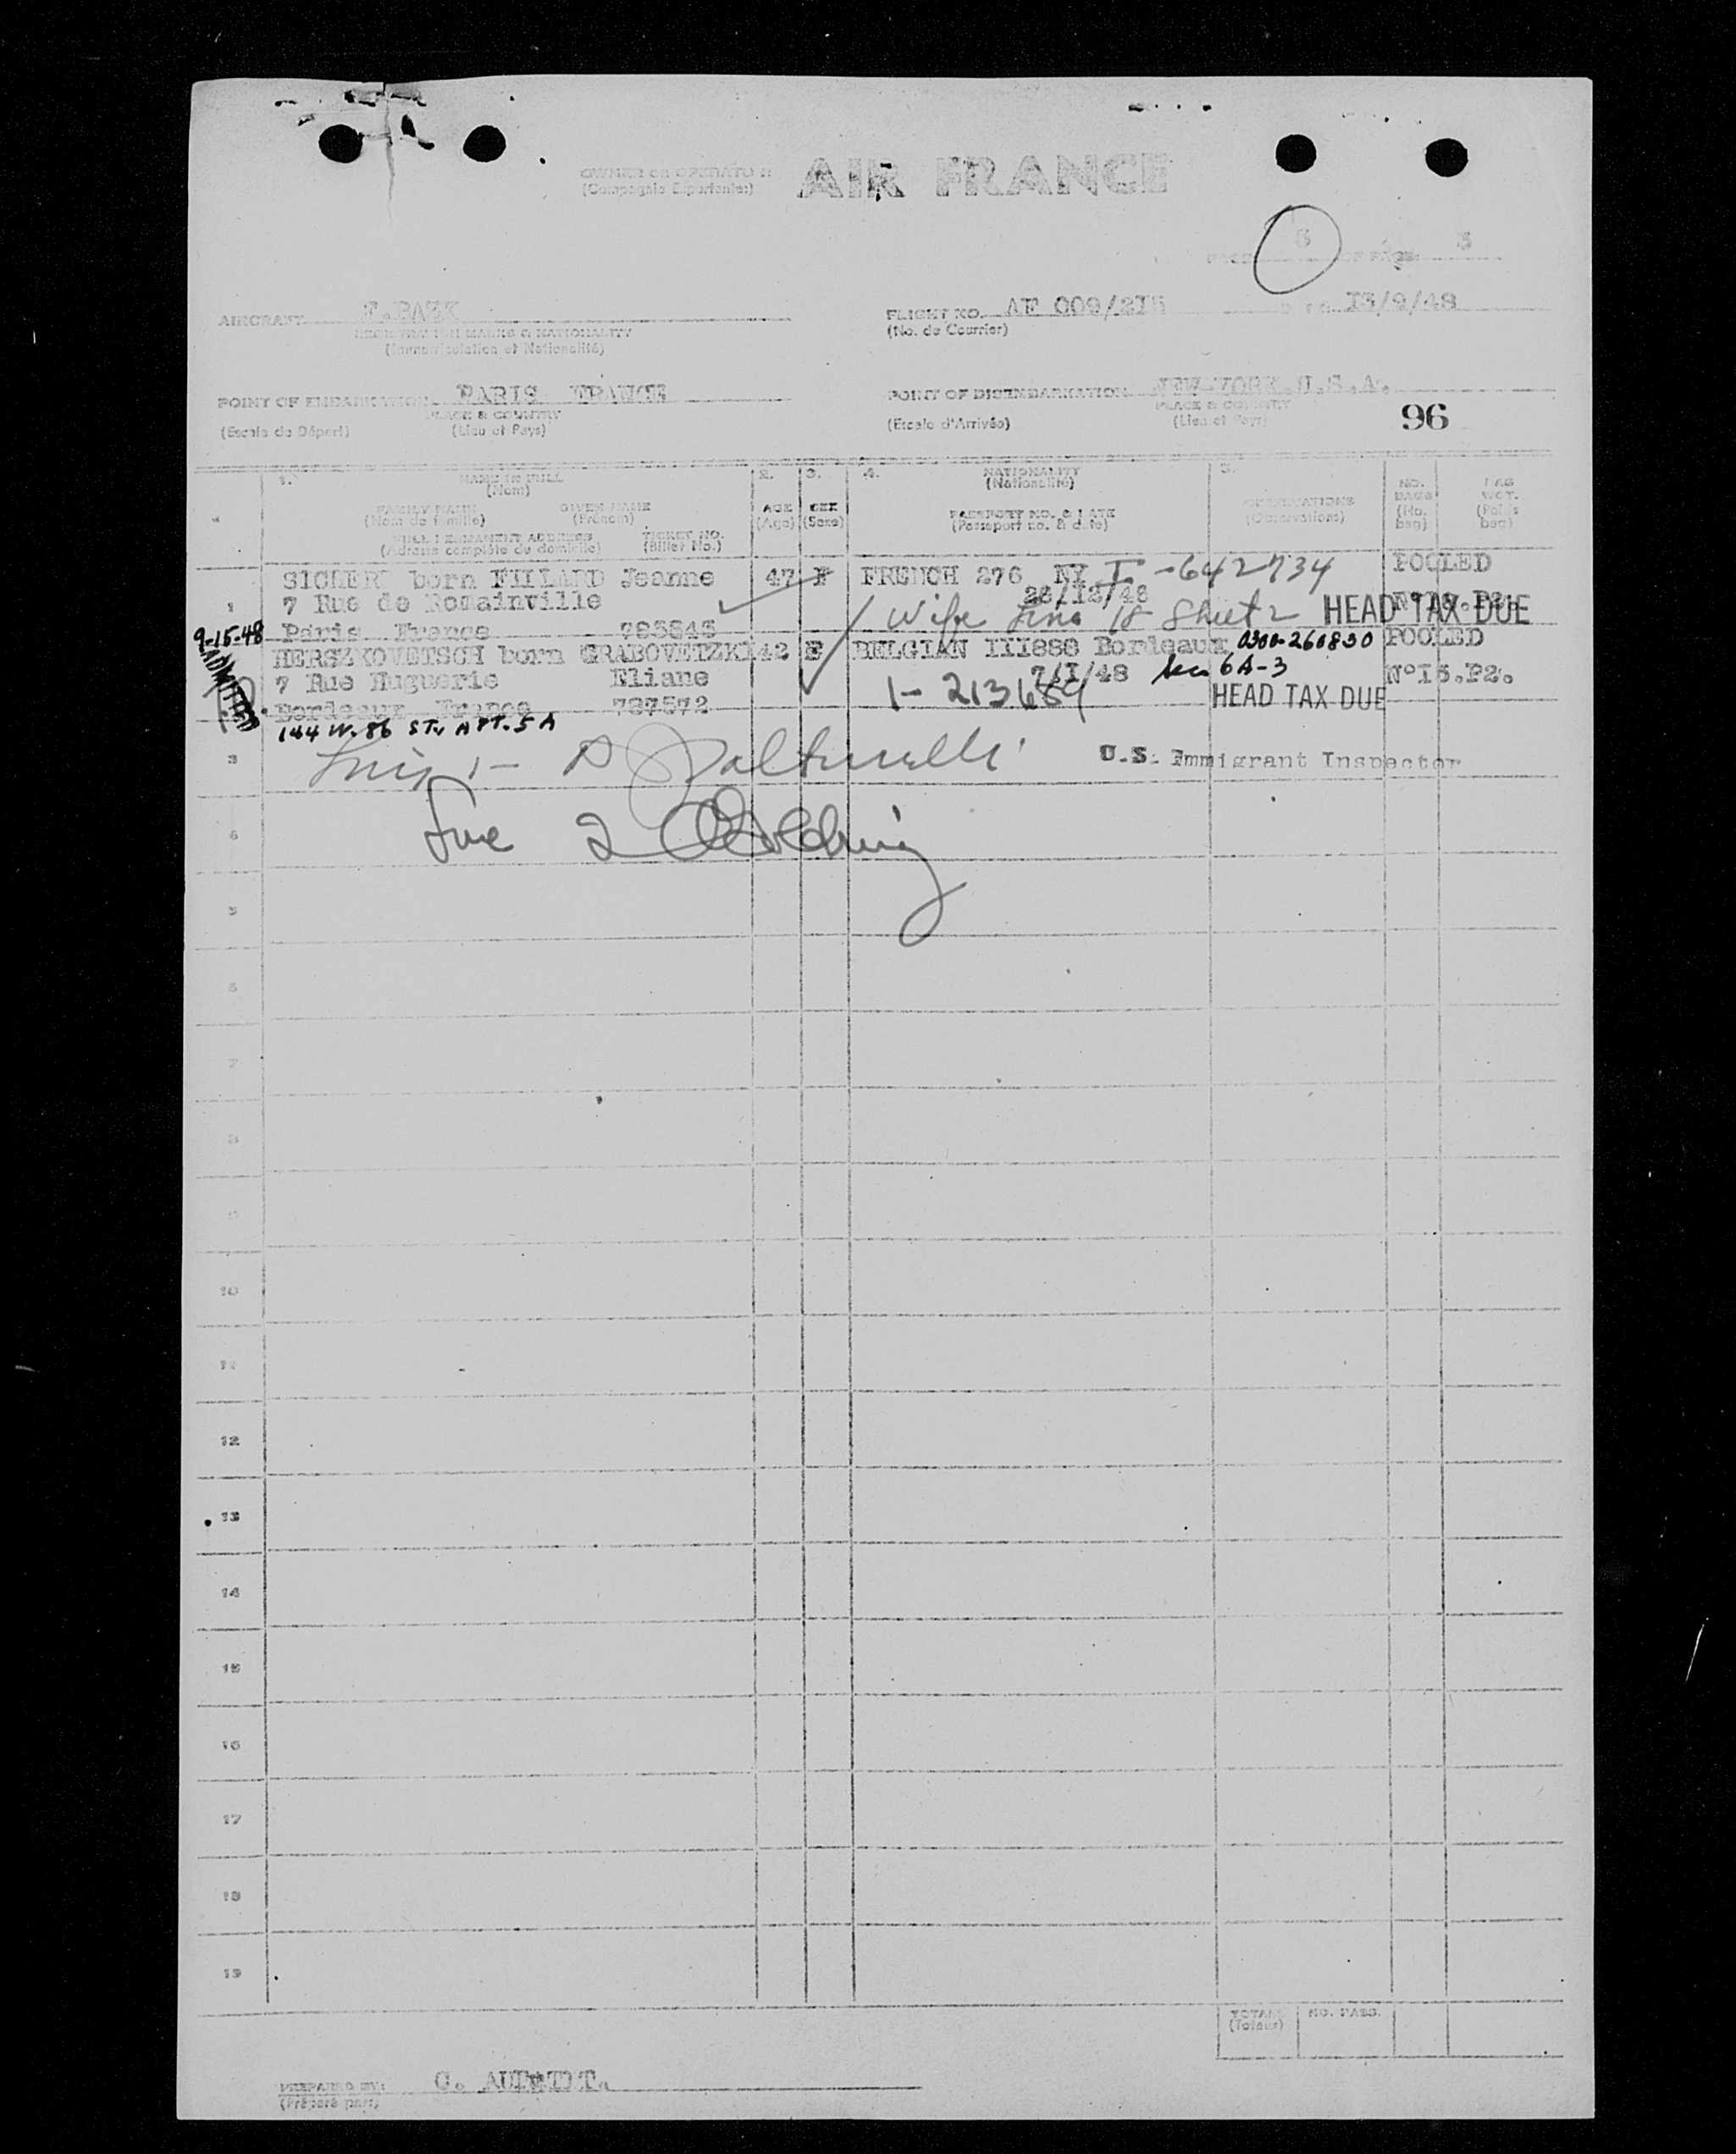 OWNER OR OPERATOR:
(Compagnie Exportante:)
AIR FRANCE
PAGE 3 OF PAGE 3
AIRCRAFT
REGISTRATION MARKS & NATIONALITY
(Immatriculation et Nationalité)
FLIGHT NO. AF 009/215 13/9/48
(No. de Courrier)
POINT OF EMBARKATION PARIS FRANCE
PLACE & COUNTRY
(Escale de Départ) (Lieu et Pays)
POINT OF DISEMBARKATION NEW YORK.U.S.A.
PLACE & COUNTRY
(Escale d'Arrivée) (Lieu et Pays)
96
1. NAME IN FULL 2. 3. 4. NATIONALITY 5.
(Nom) (Nationalité)
FAMILY NAME GIVEN NAME AGE SEX PASSPORT NO. & DATE OBSERVATIONS NO. BAGS BAG WGT.
(Nom de famille) (Prénom) (Age) (Sexe) (Passeport no. & date) (Observations) (No. bag) (Poids bag)
FULL PERMANENT ADDRESS TICKET NO.
(Adresse complète du domicile) (Billet No.)
1 born Jeanne 47 F FRENCH 276 NY I-642734 POOLED
7 Rue de Romainville 28/12/48
Wife Line 18 Sheet 2 HEAD TAX DUE
Paris France 785845
9-15-48
ADMITTED
HERSZKOVETSCH born GRABOVETZKI 42 F BELGIAN III888 Bordeaux 0300-260830 POOLED
7 Rue Huguerie Eliane 7/I/48 Sec 6A-3 N°I5.P2.
1-213689 HEAD TAX DUE
Bordeaux France 787572
144 W. 86 ST. APT. 5A
3 Line 1- U.S. Immigrant Inspector
Line 2
5
7
8
9
10
11
12
13
14
15
16
17
18
19
TOTAL NO. PASS.
(Totaux)
PREPARED BY:
(Préparé par:)